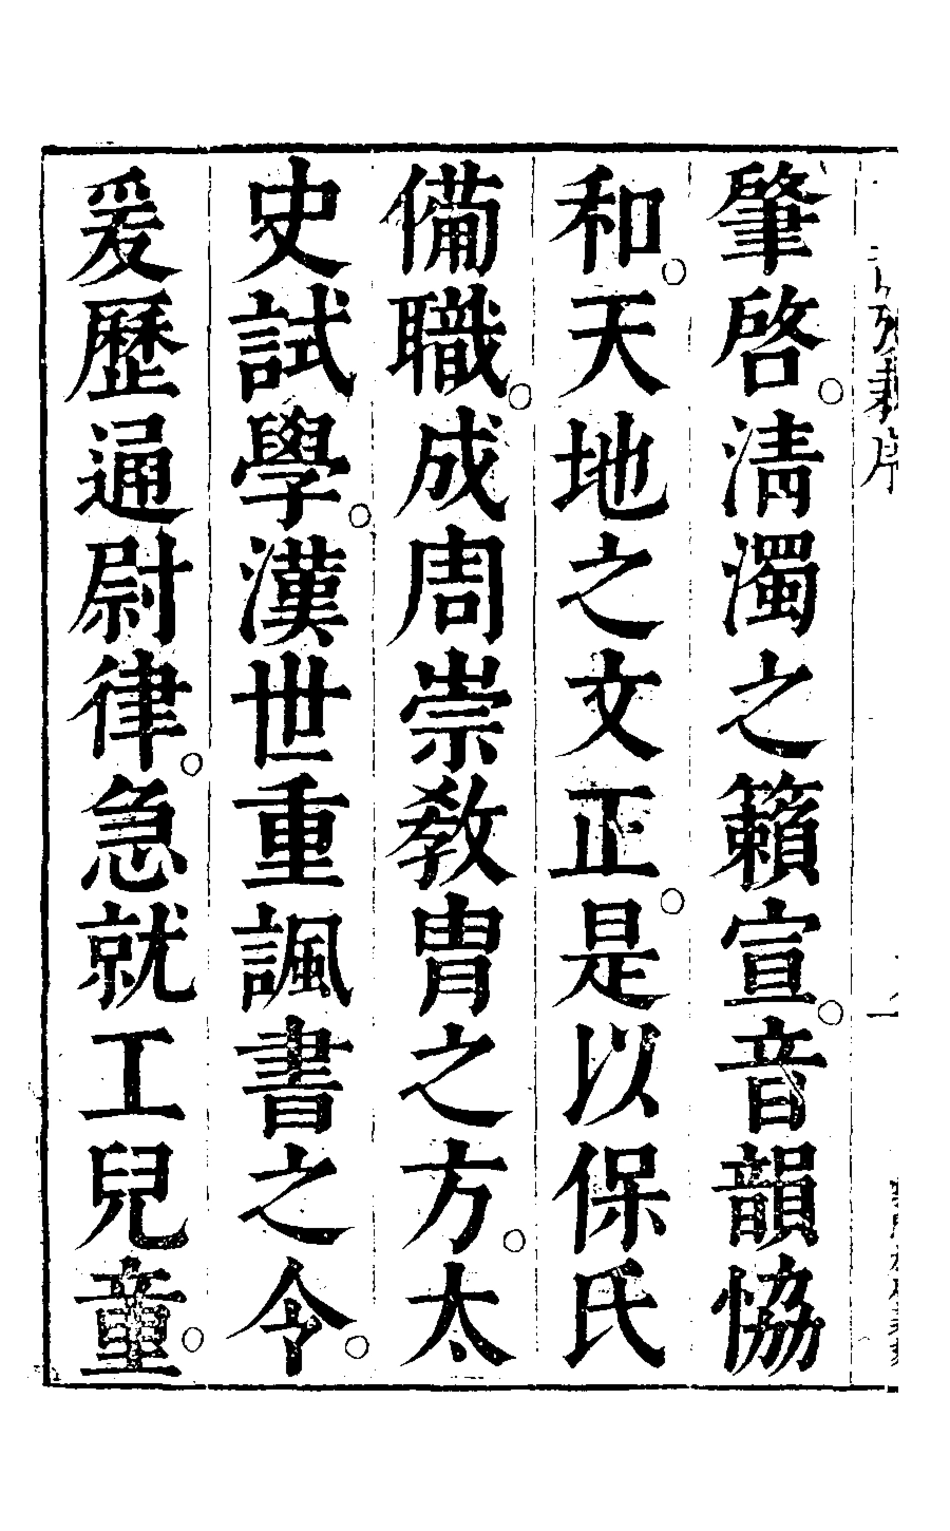 肇啓。淸濁之籟宣。音韻恊
和。天地之文正。是以保氏
備職。成周崇教胄之方。太
史試學。漢世重諷書之令。
爰歷通尉律。急就工兒童。